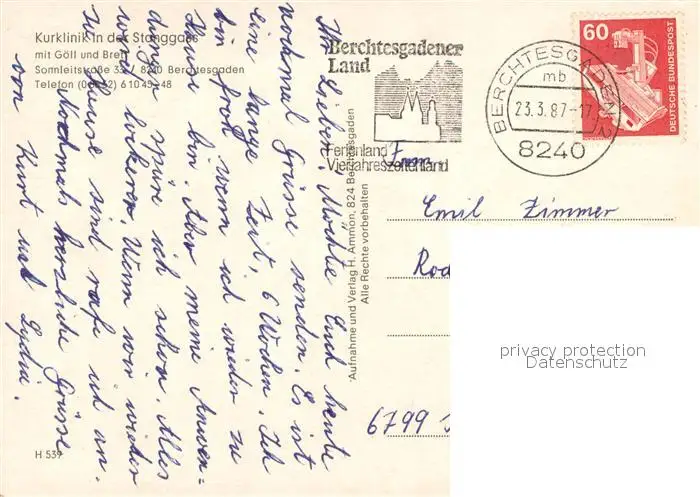 Kurklinik in der Stanggass
mit Göll und Brett
Somleitstraße 33, 8240 Berchtesgaden
Telefon (08652) 61045-48
Ihr Lieben! Möchte Euch heute
nochmal Grüsse senden. Es ist
eine lange Zeit, 6 Wochen. Ich
bin froh wenn ich wieder zu
Hause bin. Aber meine Anwen-
dungen spüre ich schon. Alles
wird lockerer. Wenn wir wieder
zu Hause sind rufe ich an.
Nochmals herzliche Grüsse
von Kurt und Lydia.
H 539
Aufnahme und Verlag H. Ammon, 824 Berchtesgaden
Alle Rechte vorbehalten
Berchtesgadener
Land
Ferienland
Vierjahreszeitenland
BERCHTESGADEN 2
mb
23.3.87-17
8240
60
DEUTSCHE BUNDESPOST
Fam.
Emil Zimmer
Rod
6799
privacy protection
Datenschutz